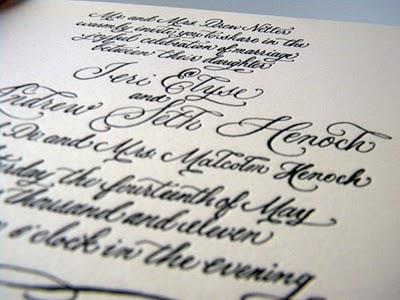 Mr. and Mrs. Drew Neiles
warmly invite you to share in the
joyful celebration of marriage
between their daughter
Jeri Elyse
and
Andrew Seth Henoch
Dr. and Mrs. Malcolm Henoch
the fourteenth of May
thousand and eleven
o'clock in the evening